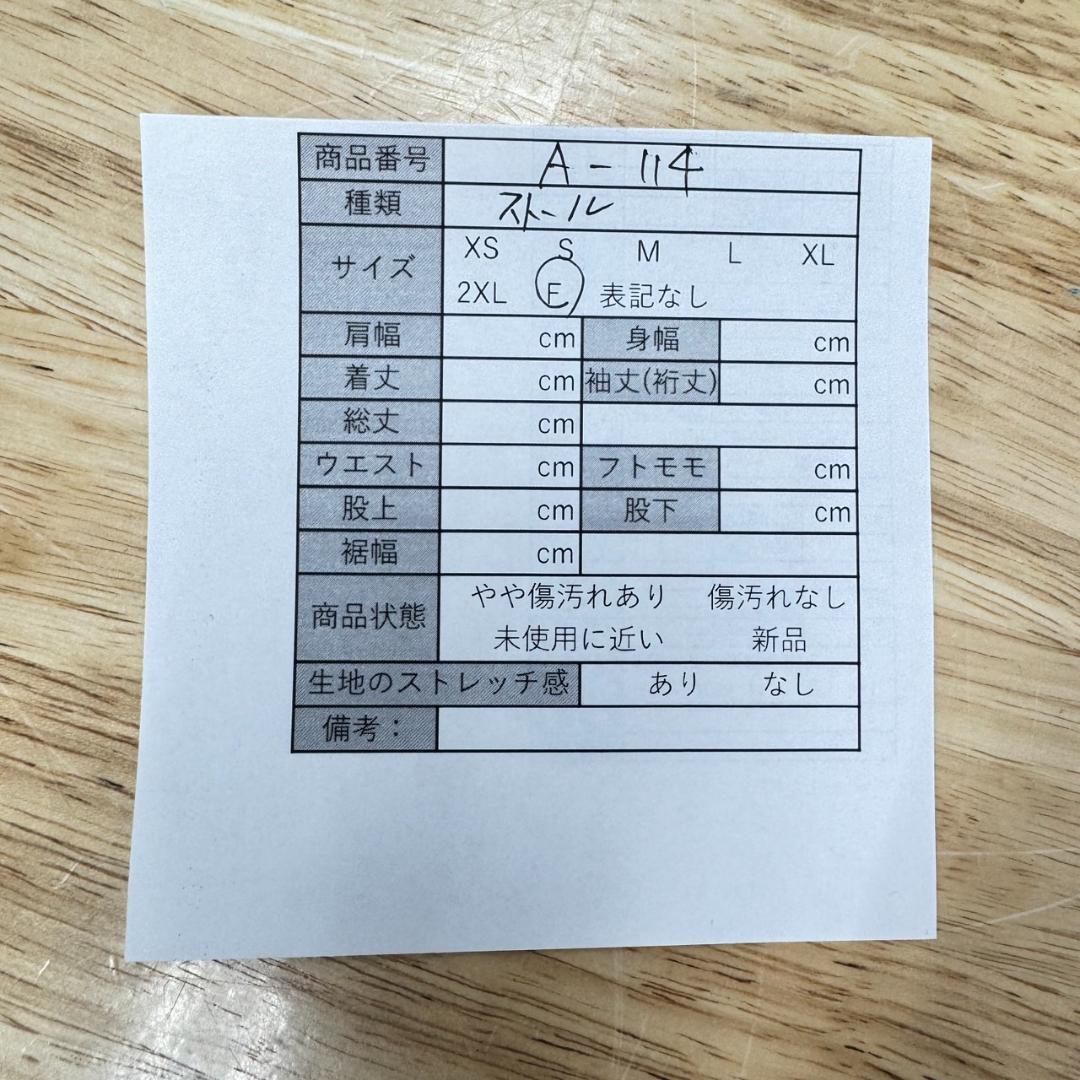 商品番号 A-114
種類 ストール
サイズ XS S M L XL
2XL F 表記なし
肩幅 cm 身幅 cm
着丈 cm 袖丈(裄丈) cm
総丈 cm
ウエスト cm フトモモ cm
股上 cm 股下 cm
裾幅 cm
商品状態 やや傷汚れあり 傷汚れなし
未使用に近い 新品
生地のストレッチ感 あり なし
備考：